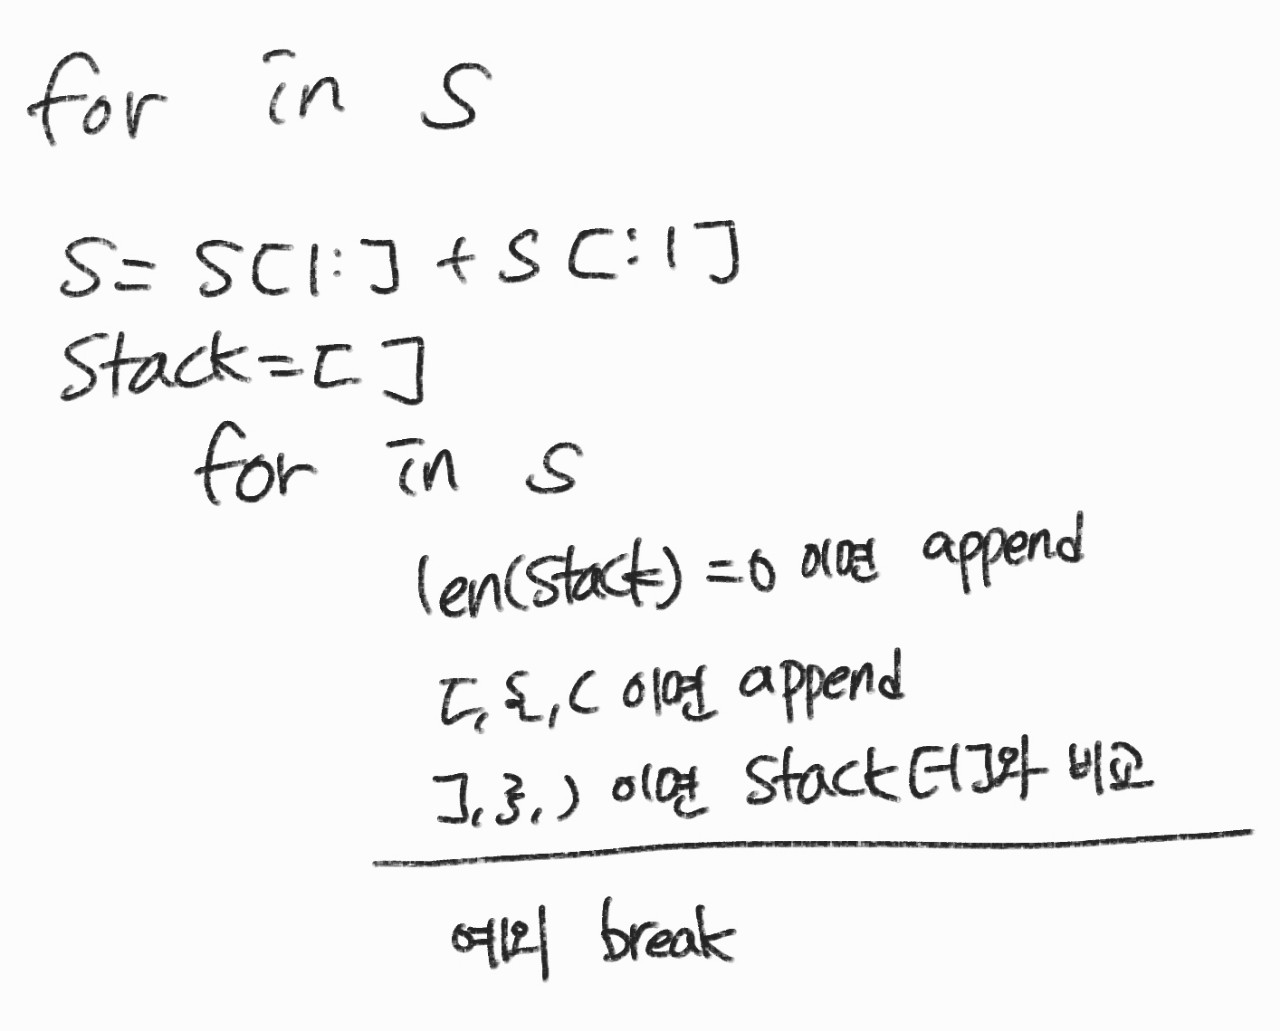 for in S
S= S[1:] + S[:1]
Stack=[ ]
for in S
len(Stack) =0 이면 append
[, {, ( 이면 append
], }, ) 이면 Stack[-1]와 비교
예외 break